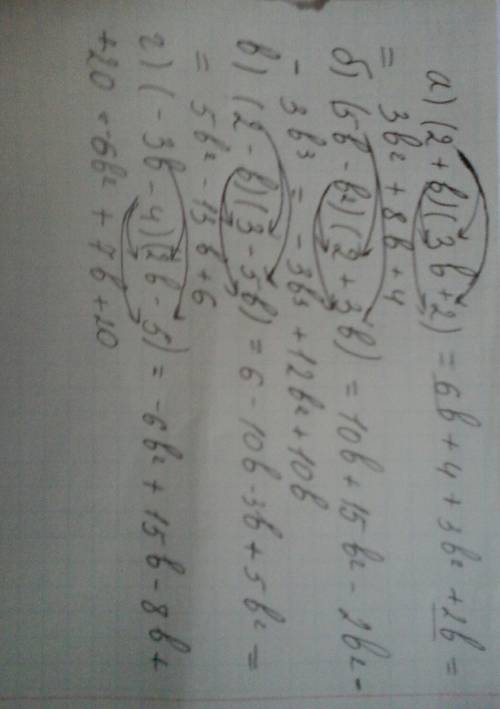 а) (2 + b)(3b + 2) = 6b + 4 + 3b² + 2b =
= 3b² + 8b + 4
б) (5b - b²)(2 + 3b) = 10b + 15b² - 2b² -
- 3b³ = -3b³ + 12b² + 10b
в) (2 - b)(3 - 5b) = 6 - 10b - 3b + 5b² =
= 5b² - 13b + 6
г) (-3b - 4)(2b - 5) = -6b² + 15b - 8b +
+ 20 = -6b² + 7b + 20